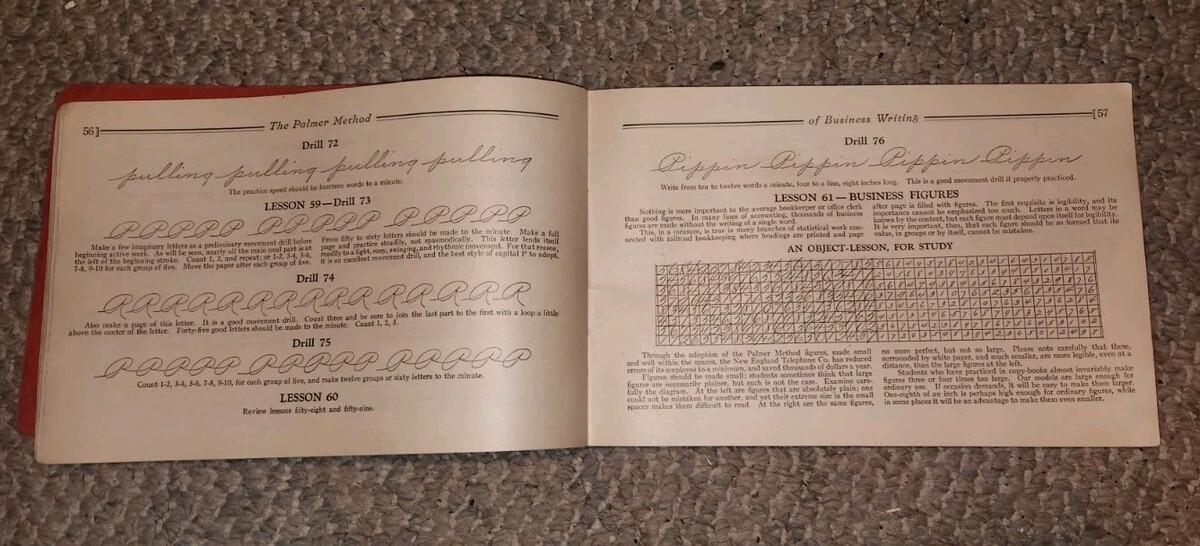 56] The Palmer Method
Drill 72
pulling pulling pulling pulling
The practice speed should be fourteen words to a minute.
LESSON 59—Drill 73
P P P P P P P P P P P P P P P
Make a few imaginary letters as a preliminary movement drill before
beginning active work. As will be seen, nearly all the main oval part is at
the left of the beginning stroke. Count 1, 2, and repeat; or 1-2, 3-4, 5-6,
7-8, 9-10 for each group of five. Move the paper after each group of five.
From fifty to sixty letters should be made to the minute. Make a full
page and practice steadily, not spasmodically. This letter lends itself
readily to a light, easy, swinging, and rhythmic movement. For that reason,
it is an excellent movement drill, and the best style of capital P to adopt.
Drill 74
R R R R R R R R R R R R R R R
Also make a page of this letter. It is a good movement drill. Count three and be sure to join the last part to the first with a loop a little
above the center of the letter. Forty-five good letters should be made to the minute. Count 1, 2, 3.
Drill 75
P P P P P P P P P P P P P P P
Count 1-2, 3-4, 5-6, 7-8, 9-10, for each group of five, and make twelve groups or sixty letters to the minute.
LESSON 60
Review lessons fifty-eight and fifty-nine.
of Business Writing [57
Drill 76
Pippin Pippin Pippin Pippin
Write from ten to twelve words a minute, four to a line, eight inches long. This is a good movement drill if properly practiced.
LESSON 61—BUSINESS FIGURES
Nothing is more important to the average bookkeeper or office clerk
than good figures. In many lines of accounting, thousands of business
figures are made without the writing of a single word.
This, in a measure, is true in many branches of statistical work con-
nected with railroad bookkeeping where headings are printed and page
after page is filled with figures. The first requisite is legibility, and its
importance cannot be emphasized too much. Letters in a word may be
known by the context, but each figure must depend upon itself for legibility.
It is very important, then, that each figure should be so formed that its
value, in groups or by itself, cannot be mistaken.
AN OBJECT-LESSON, FOR STUDY
Through the adoption of the Palmer Method figures, made small
and well within the spaces, the New England Telephone Co. has reduced
errors of its employees to a minimum, and saved thousands of dollars a year.
Figures should be made small; students sometimes think that large
figure are necessarily plainer, but such is not the case. Examine care-
fully the diagram. At the left are figures that are absolutely plain; one
could not be mistaken for another, and yet their extreme size in the small
spaces makes them difficult to read. At the right are the same figures,
no more perfect, but not so large. Please note carefully that these,
surrounded by white paper, and much smaller, are more legible, even at a
distance, than the large figures at the left.
Students who have practiced in copy-books almost invariably make
figures three or four times too large. Our models are large enough for
ordinary use. If occasion demands, it will be easy to make them larger.
One-eighth of an inch is perhaps high enough for ordinary figures, while
in some places it will be an advantage to make them even smaller.